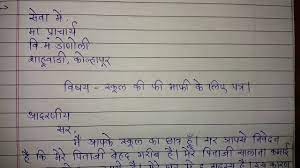 सेवा में,
मा. प्राचार्य
वि. मं. डोणोली
शाहूवाडी, कोल्हापूर
विषय - स्कूल की फी माफी के लिए पत्र।
आदरणीय
सर
में आपके स्कूल का छात्र हूँ। सर आपसे निवेदन
है कि मेरे पिताजी बेहद गरीब है। मेरे पिताजी सालाना कमाई